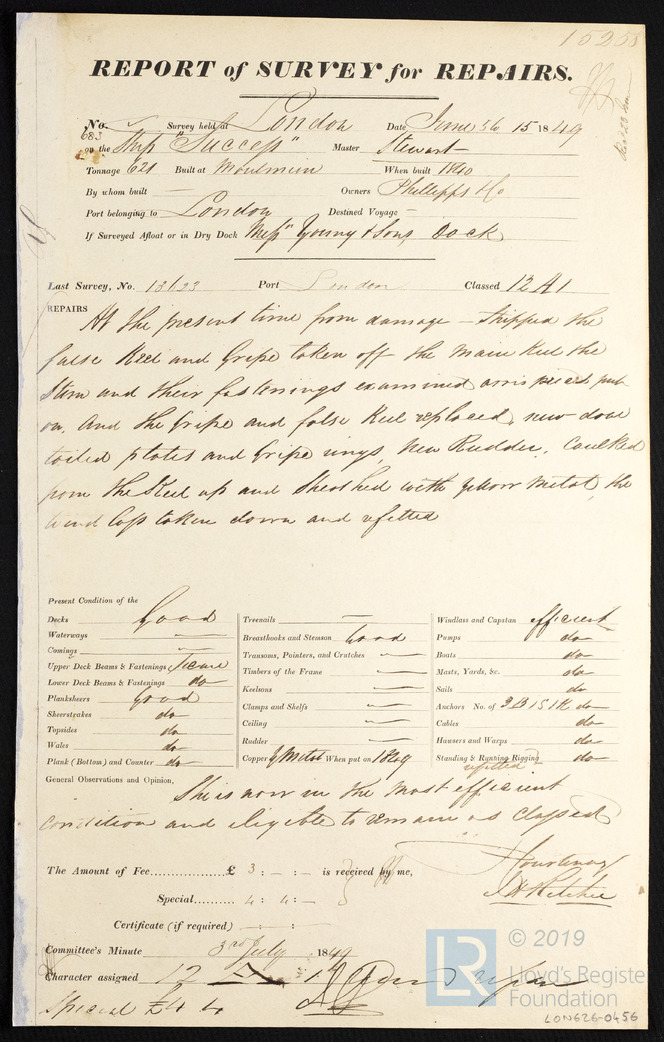 15258
REPORT of SURVEY for REPAIRS.
No. 683 Survey held at London Date June 15 1849
on the Ship "Success" Master Stewart
Tonnage 621 Built at Moulmein When built 1840
By whom built — Owners Phillipps & Co
Port belonging to London Destined Voyage —
If Surveyed Afloat or in Dry Dock Messrs Young & Sons Dock
Last Survey, No. Port London Classed 12 A1
REPAIRS At the present time from damage — Stripped the
false Keel and Gripe taken off the main Keel the
Stem and their fastenings examined arris pieces put
on, And the Gripe and false Keel replaced, new dove
tailed plates and Gripe rings, New Rudder, Caulked
from the Keel up and Sheathed with Yellow Metal, the
Wind lass taken down and refitted
Present Condition of the
Decks Good
Waterways —
Comings —
Upper Deck Beams & Fastenings Secure
Lower Deck Beams & Fastenings do
Planksheers Good
Sheerstrakes do
Topsides do
Wales do
Plank (Bottom) and Counter do
Treenails —
Breasthooks and Stemson Good
Transoms, Pointers, and Crutches —
Timbers of the Frame —
Keelsons —
Clamps and Shelfs —
Ceiling —
Rudder —
Copper Y Metal When put on 1849
Windlass and Capstan efficient
Pumps do
Boats do
Masts, Yards, &c. do
Sails do
Anchors No. of 3B 1S 1K do
Cables do
Hawsers and Warps do
Standing & Running Rigging do
refitted
General Observations and Opinion,
She is now in the most efficient
condition and eligible to remain as classed
Courtenay
J H Ritchie
The Amount of Fee................£ 3 : – : – is received by me,
Special......... 4 : 4 : –
Certificate (if required) – : – :
Committee's Minute 3rd July 1849
Character assigned 12
Special £4 4
LR © 2019
Lloyd's Register
Foundation
LON626-0456